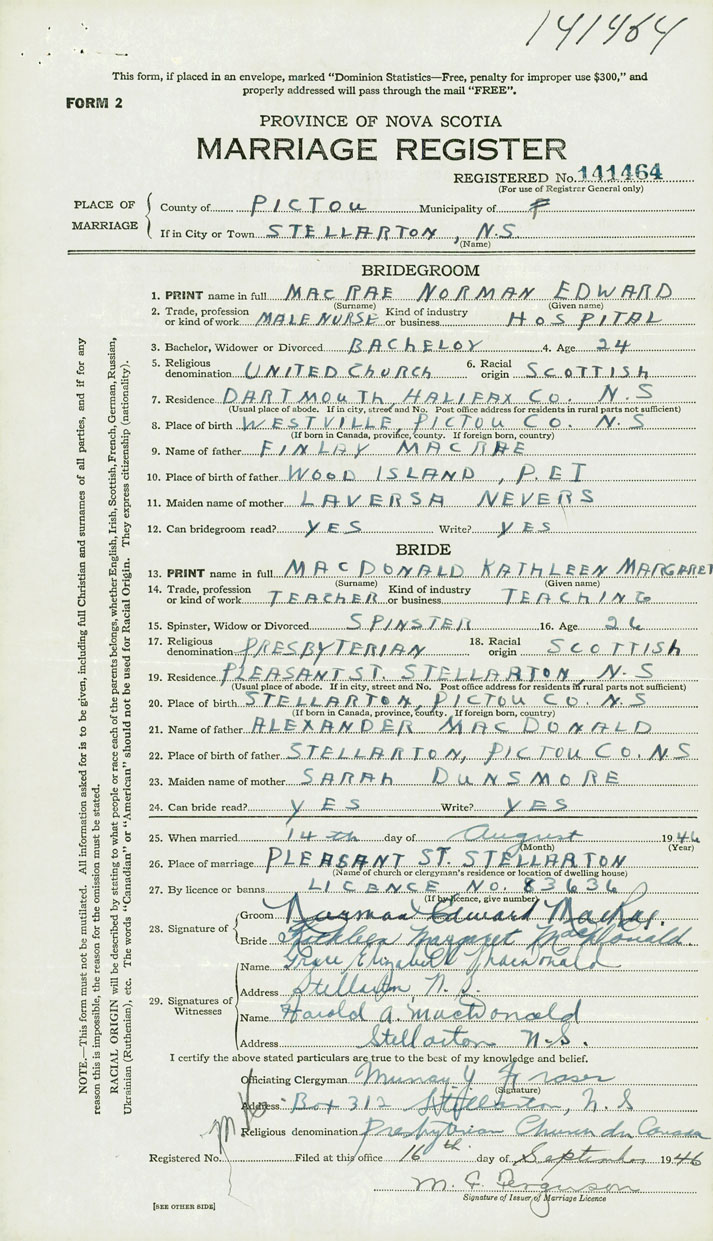 141464
This form, if placed in an envelope, marked "Dominion Statistics—Free, penalty for improper use $300," and
properly addressed will pass through the mail "FREE".
FORM 2
PROVINCE OF NOVA SCOTIA
MARRIAGE REGISTER
REGISTERED No. 141464
(For use of Registrar General only)
PLACE OF MARRIAGE
County of PICTOU Municipality of
If in City or Town STELLARTON, N.S.
(Name)
BRIDEGROOM
1. PRINT name in full MACRAE NORMAN EDWARD
(Surname) (Given name)
2. Trade, profession or kind of work MALE NURSE Kind of industry or business HOSPITAL
3. Bachelor, Widower or Divorced BACHELOR 4. Age 24
5. Religious denomination UNITED CHURCH 6. Racial origin SCOTTISH
7. Residence DARTMOUTH, HALIFAX CO. N.S
(Usual place of abode. If in city, street and No. Post office address for residents in rural parts not sufficient)
8. Place of birth WESTVILLE, PICTOU CO. N.S
(If born in Canada, province, county. If foreign born, country)
9. Name of father FINLAY MACRAE
10. Place of birth of father WOOD ISLAND, P.EI
11. Maiden name of mother LAVERSA NEVERS
12. Can bridegroom read? YES Write? YES
BRIDE
13. PRINT name in full MACDONALD KATHLEEN MARGARET
(Surname) (Given name)
14. Trade, profession or kind of work TEACHER Kind of industry or business TEACHING
15. Spinster, Widow or Divorced SPINSTER 16. Age 26
17. Religious denomination PRESBYTERIAN 18. Racial origin SCOTTISH
19. Residence PLEASANT ST. STELLARTON, N.S
(Usual place of abode. If in city, street and No. Post office address for residents in rural parts not sufficient)
20. Place of birth STELLARTON, PICTOU CO. N.S
(If born in Canada, province, county. If foreign born, country)
21. Name of father ALEXANDER MACDONALD
22. Place of birth of father STELLARTON, PICTOU CO. N.S
23. Maiden name of mother SARAH DUNSMORE
24. Can bride read? YES Write? YES
25. When married 14th day of August 1946
(Month) (Year)
26. Place of marriage PLEASANT ST. STELLARTON
(Name of church or clergyman's residence or location of dwelling house)
27. By licence or banns LICENCE NO. 83636
(If by licence, give number)
28. Signature of
Groom Norman Edward MacRae
Bride Kathleen Margaret MacDonald
29. Signatures of Witnesses
Name Elizabeth MacDonald
Address Stellarton, N.S.
Name Harold A. MacDonald
Address Stellarton N.S.
I certify the above stated particulars are true to the best of my knowledge and belief.
Officiating Clergyman Murray Y Fraser
(Signature)
Address Box 312 Stellarton, N.S
Religious denomination Presbyterian Church in Canada
Registered No. Filed at this office 16th day of September 1946
M. C. Ferguson
Signature of Issuer of Marriage Licence
[SEE OTHER SIDE]
NOTE.—This form must not be mutilated. All information asked for is to be given, including full Christian and surnames of all parties, and if for any
reason this is impossible, the reason for the omission must be stated.
RACIAL ORIGIN will be described by stating to what people or race each of the parents belongs, whether English, Irish, Scottish, French, German, Russian,
Ukrainian (Ruthenian), etc. The words "Canadian" or "American" should not be used for Racial Origin. They express citizenship (nationality).